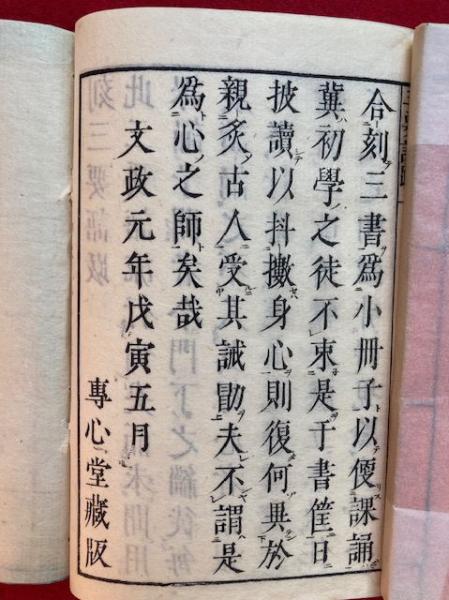 合刻三書爲小冊子以便課誦
冀初學之徒不束是于書筐日
披讀以抖擻身心則復何異於
親炙古人受其誡勖夫不謂是
爲心之師矣哉
文政元年戊寅五月
專心堂藏版